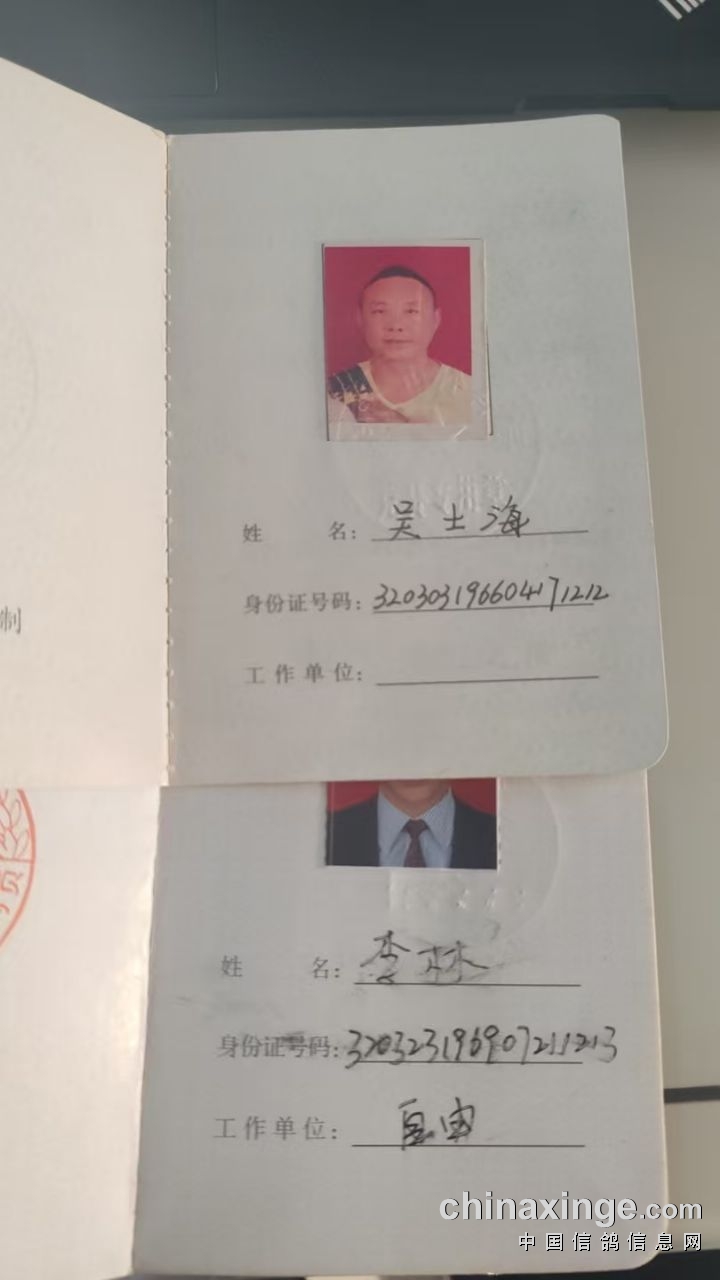 制
姓 名: 吴士海
身份证号码: 320303196604171212
工作单位:
姓 名: 李林
身份证号码: 320323196907211213
工作单位: 自由
chinaxinge.com
中国信鸽信息网